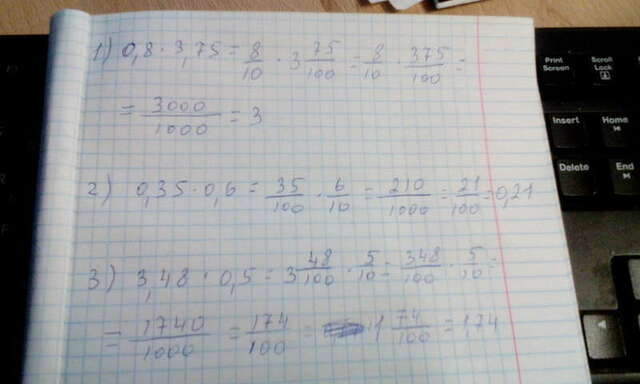 1) 0,8 · 3,75 = 8/10 · 3 75/100 = 8/10 · 375/100 =
= 3000/1000 = 3
2) 0,35 · 0,6 = 35/100 · 6/10 = 210/1000 = 21/100 = 0,21
3) 3,48 · 0,5 = 3 48/100 · 5/10 = 348/100 · 5/10 =
= 1740/1000 = 174/100 = 1 74/100 = 1,74
Print Screen
Scroll Lock
Insert
Home
Delete
End